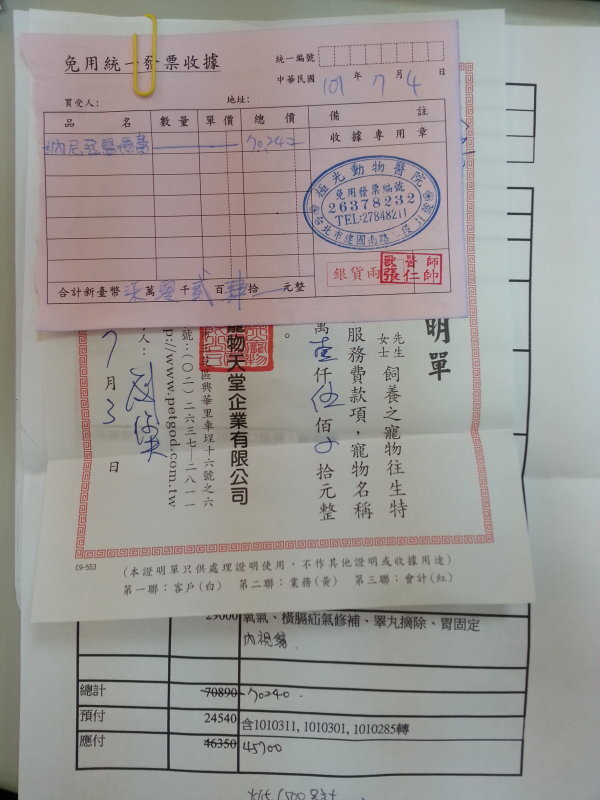 免用統一發票收據
統一編號
中華民國 101 年 7 月 4 日
買受人： 地址：
品名 數量 單價 總價 備註
收據專用章
納尼亞醫療費 70240
極光動物醫院
免用發票編號
26378232
TEL:27848211
台北市建國南路一段
合計新臺幣 柒萬零千貳百肆拾 元整
銀貨兩
獸醫師
張仁帥
明單
先生
女士
飼養之寵物往生特
服務費款項，寵物名稱
萬壹仟伍佰 拾元整
寵物天堂企業有限公司
區興華里車埕十六號之六
號：(〇二)二六三七—二八一一
http://www.petgod.com.tw
人：
7月3日
C9-553
(本證明單只供處理證明使用，不作其他證明或收據用途)
第一聯：客戶(白) 第二聯：業務(黃) 第三聯：會計(紅)
29000 氧氣、橫膈疝氣修補、睪丸摘除、胃固定
內視鏡
總計 70890 70240.
預付 24540 含1010311, 1010301, 1010285轉
應付 46350 45700